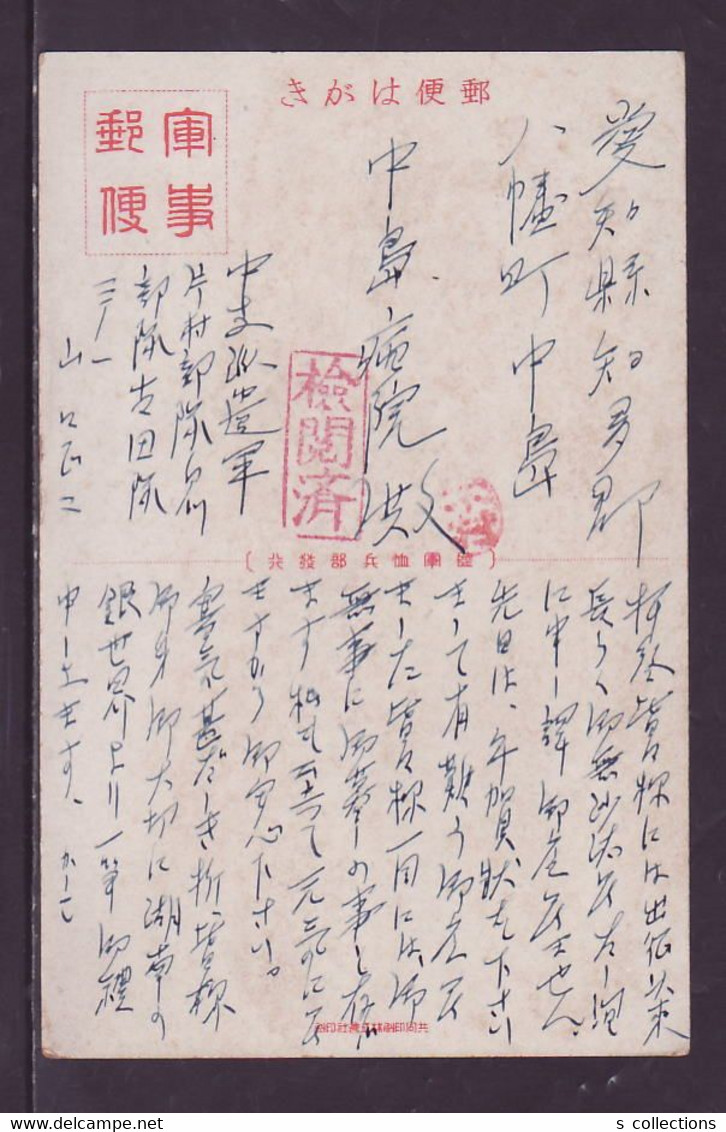 郵便はがき
軍事
郵便
愛知縣知多郡
八幡町中島
中島病院殿
中支派遣軍
片村部隊
部隊吉田隊
山口正二
檢閲済
(陸軍恤兵部發行)
拝啓皆々様には出征以來
長らく御無沙汰致し
に申し譯御座居ません。
先日は、年賀狀を下さい
まして有難う御座居
ました皆々様一同には、御
無事に御暮しの事と存じ
ます私も至って元気に居
ますから御安心下さい。
寒気甚だしき折、皆様
御身御大切に湖南の
銀世界より一筆御禮
申し上ます、かしこ
s collections